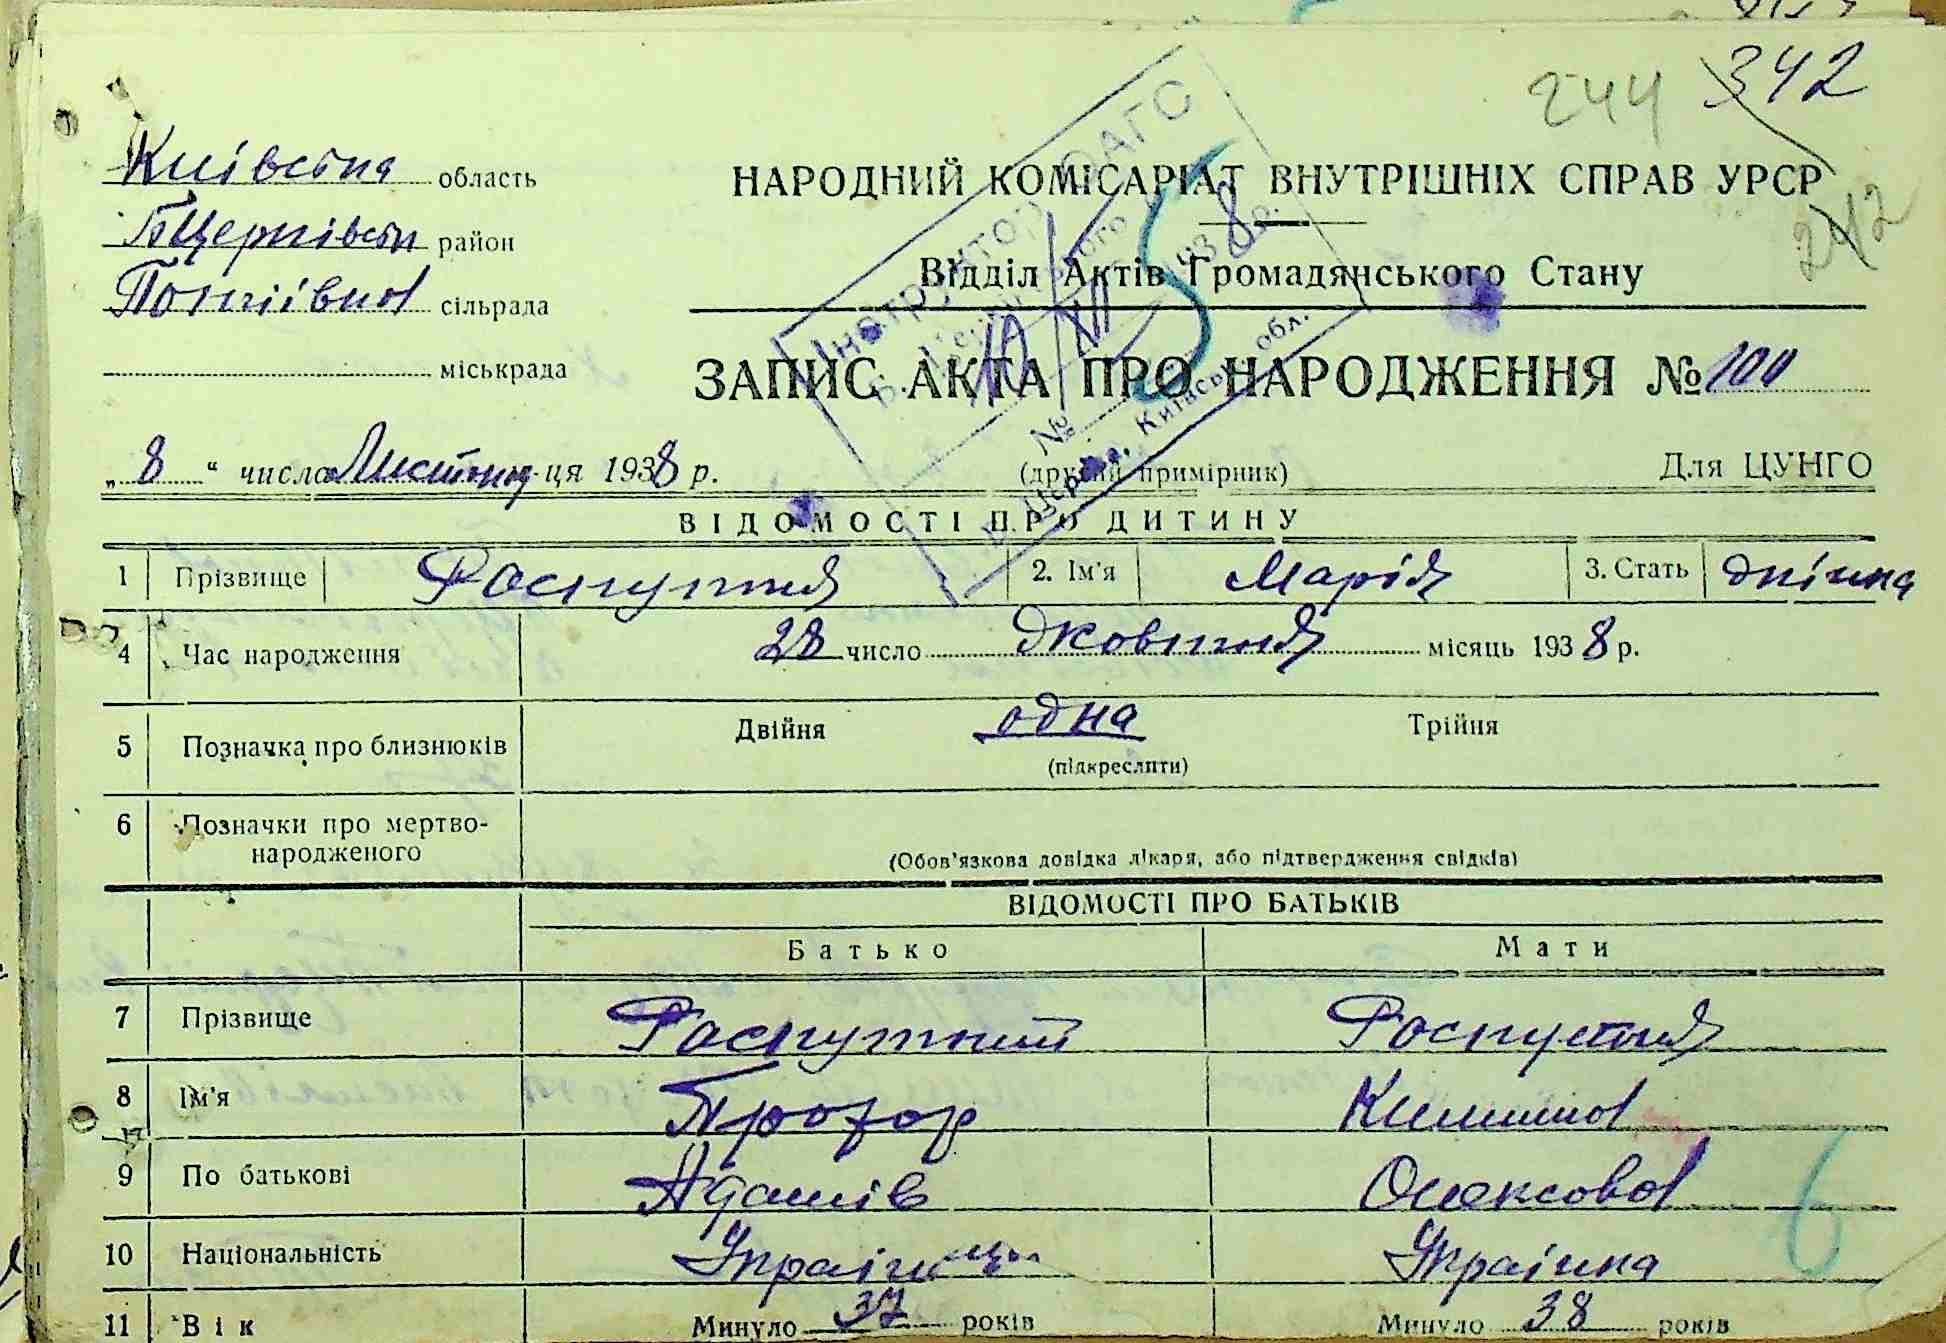 244 342
Київська область
НАРОДНИЙ КОМІСАРІАТ ВНУТРІШНІХ СПРАВ УРСР
242
Б Церківськ район
Відділ Актів Громадянського Стану
сільрада
міськрада
ЗАПИС АКТА ПРО НАРОДЖЕННЯ № 100
„8“ числа Листопад-ця 1938 р.
(другий примірник)
Для ЦУНГО
ВІДОМОСТІ ПРО ДИТИНУ
1 Прізвище Распутня 2. Ім'я Марія 3. Стать дпівка
4 Час народження 28 число Жовтня місяць 1938 р.
5 Позначка про близнюків Двійня одна Трійня
(підкреслити)
6 Позначки про мертво-
народженого
(Обов'язкова довідка лікаря, або підтвердження свідків)
ВІДОМОСТІ ПРО БАТЬКІВ
Батько Мати
7 Прізвище Распутний Распутня
8 Ім'я Прохор
9 По батькові Адамів Олексова
10 Національність Українець Українка
6
11 Вік Минуло 37 років Минуло 38 років